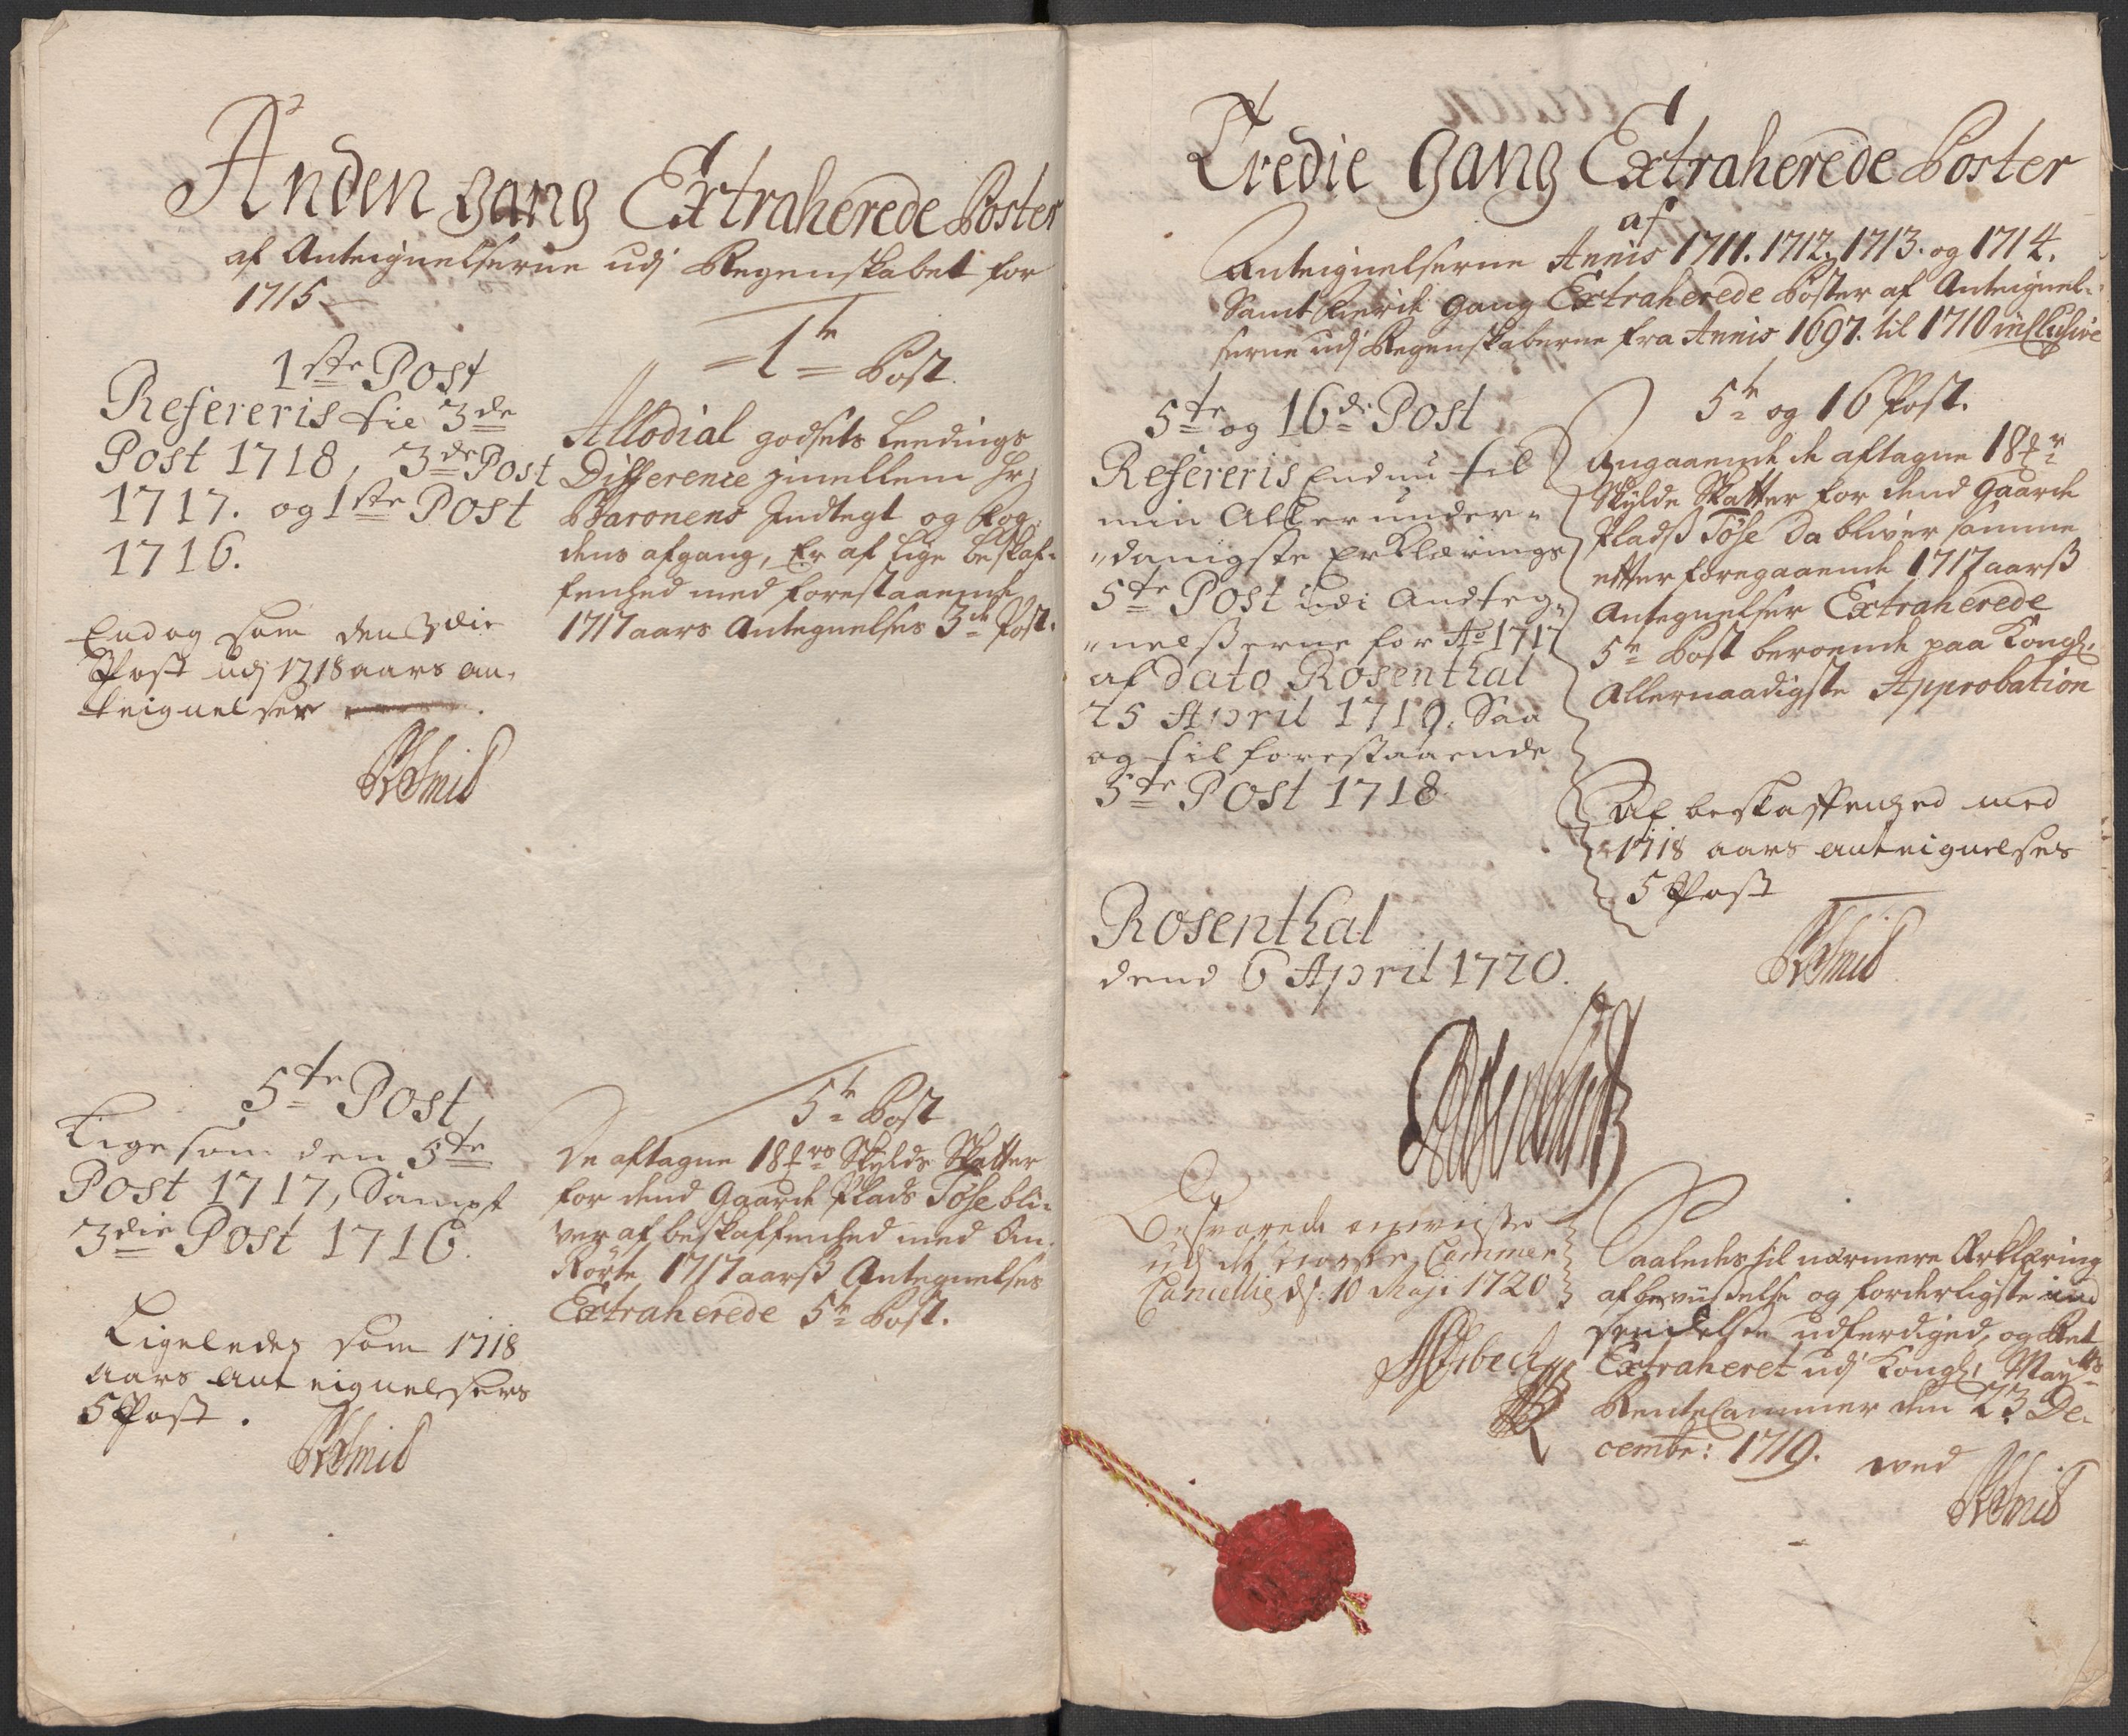 Anden gang Extraherede Poster
af Anteignelserne udj Regenskabet for
1715
1ste Post
Refereris til 3de
Post 1718, 3de Post
1717. og 1ste Post
1716.
Endog som den 3die
Post udj 1718 aars an-
teignelser
1te Post.
Allodial godsets Leedings
Difference imellem Hr:
Baronens Indtegt og fog-
dens afgang, Er af lige beskaf-
fenhed med forestaaende
1717 aars Antegnelses 3de Post.
5te Post
Lige som den 5te
Post 1717, Sampt
3die Post 1716.
Ligeledes som 1718
aars anteignelsers
5 Post.
5te Post
De aftagne 18 Skylds Skatter
for dend Gaarde Plads Tose bli-
ver af beskaffenhed med An-
Rørte 1717 aarss Antegnelses
Extraherede 5te Post.
Tredie gang Extraherede Poster
af
Anteignelserne Annis 1711. 1712. 1713. og 1714.
Samt fierde gang Extraherede Poster af Anteignel-
serne udj Regenskaberne fra Annis 1697. til 1710 inclusive
5te og 16de Post
Refereris Endnu til
min Allerunder-
danigste Erklærings
5te Post udi Andteg-
nelsserne for Ao 1717
af dato Rosenthal
25 April 1719. Saa
og til forestaaende
5te Post 1718
Rosenthal
dend 6 April 1720.
5te og 16 Post.
Angaaende de aftagne 18
Skylde Skatter for dend Gaarde
Pladss Tose Da bliver samme
efter foregaaende 1717 aarss
Antegnelser Extraherede
5te Post beroende paa Kongl.
Allernaadigste Approbation
Af beskaffenhed med
1718 aars anteignelses
5 Post
Rosenkrantz
Besvarede
udj det Norske Cammer
Cancellie d: 10 Maji 1720
Saaledes til nærmere Erklæring
afbeviidelse og forderligste ind
sendelse udferdiged, og Ret
Extraheret udj Kongl. Mayts
RenteCammer den 23 De-
cembr: 1719. ved